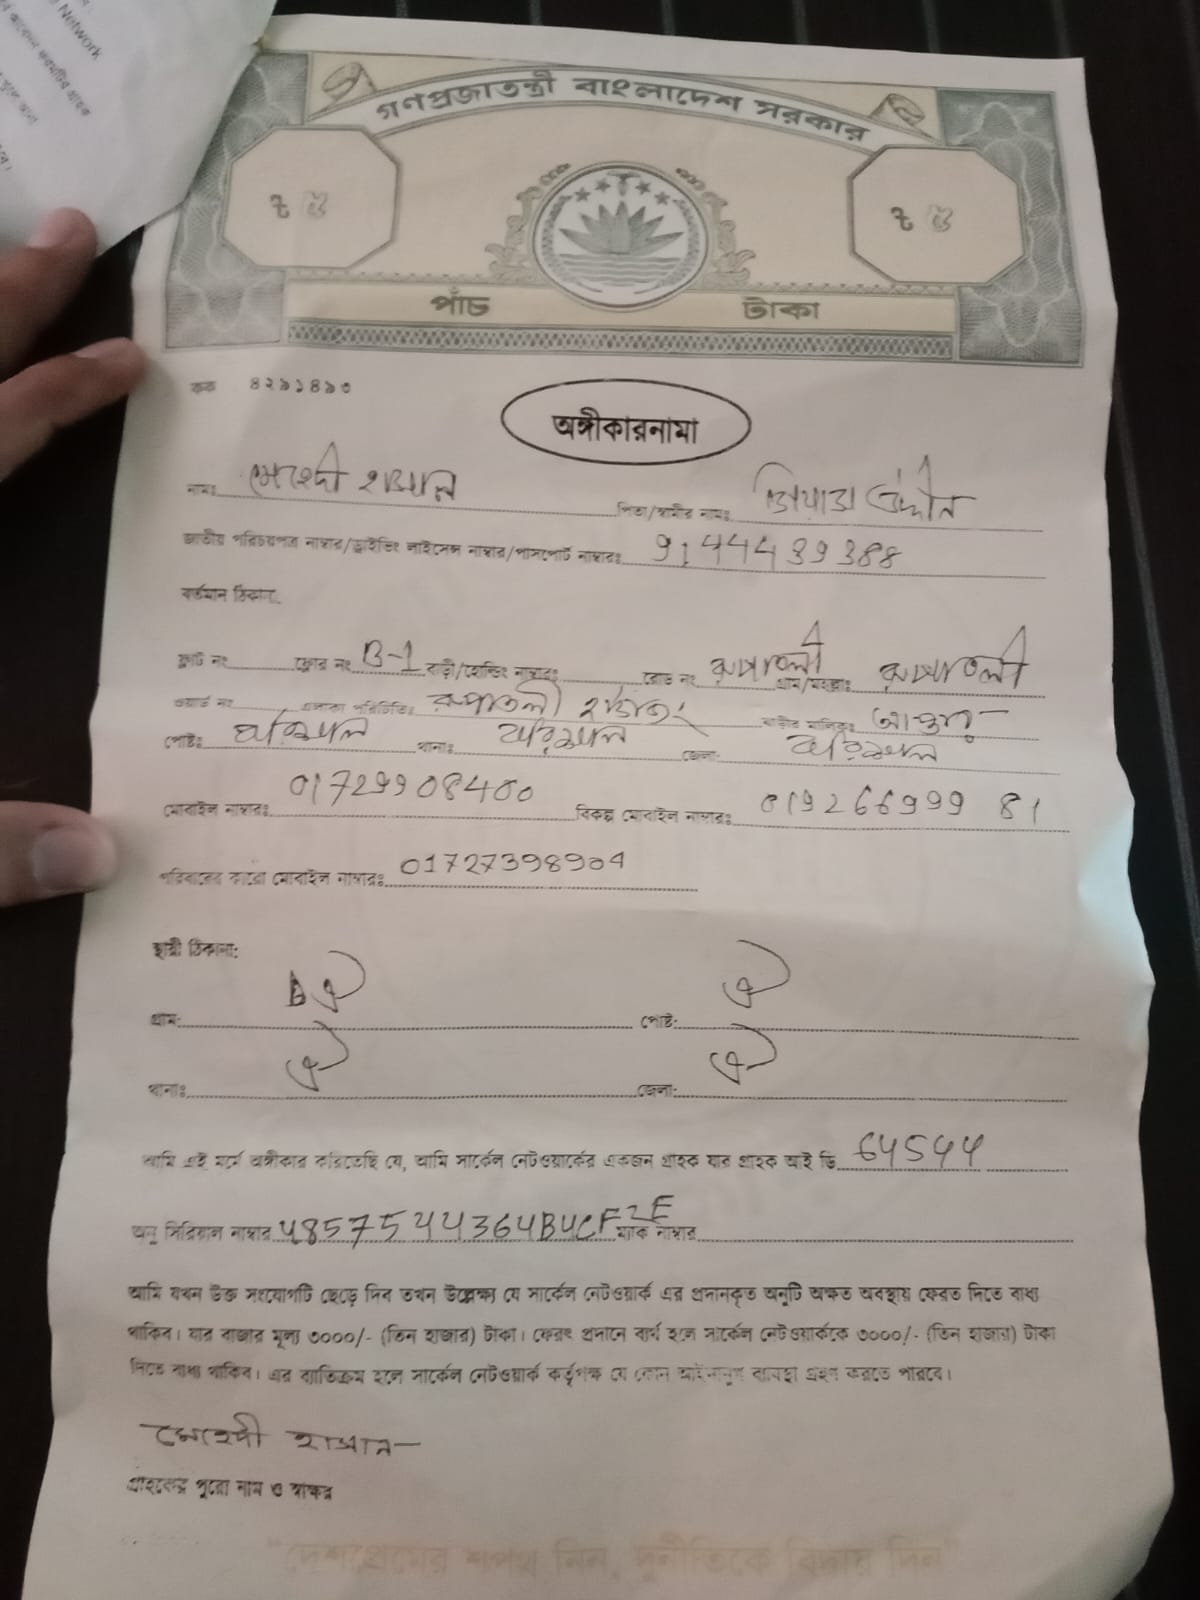 Network
গণপ্রজাতন্ত্রী বাংলাদেশ সরকার
৳ ৫ ৳ ৫
পাঁচ টাকা
কক ৪২৯১৪৯৩
অঙ্গীকারনামা
নামঃ মেহেদী হাসান পিতা/স্বামীর নামঃ জিয়া উদ্দীন
জাতীয় পরিচয়পত্র নাম্বার/ড্রাইভিং লাইসেন্স নাম্বার/পাসপোর্ট নাম্বারঃ
বর্তমান ঠিকানা:
ফ্লাট নং ফ্লোর নং B-1 বাড়ী/হোল্ডিং নাম্বারঃ রোড নং রুপাতলী গ্রাম/মহল্লাঃ রুপাতলী
ওয়ার্ড নং এলাকা পরিচিতিঃ রুপাতলী হাউজিং বাড়ীর মালিকঃ
পোষ্টঃ বরিশাল থানাঃ বরিশাল জেলা: বরিশাল
মোবাইল নাম্বারঃ 01729908400 বিকল্প মোবাইল নাম্বারঃ 01926699981
পরিবারের কারো মোবাইল নাম্বারঃ 01727398904
স্থায়ী ঠিকানা:
গ্রাম: ঐ পোষ্ট: ঐ
থানাঃ ঐ জেলা: ঐ
আমি এই মর্মে অঙ্গীকার করিতেছি যে, আমি সার্কেল নেটওয়ার্কের একজন গ্রাহক যার গ্রাহক আই ডি 64544
অনু সিরিয়াল নাম্বার 4857544364B4CF2E ম্যাক নাম্বার
আমি যখন উক্ত সংযোগটি ছেড়ে দিব তখন উল্লেক্ষ্য যে সার্কেল নেটওয়ার্ক এর প্রদানকৃত অনুটি অক্ষত অবস্থায় ফেরত দিতে বাধ্য
থাকিব। যার বাজার মূল্য ৩০০০/- (তিন হাজার) টাকা। ফেরৎ প্রদানে ব্যর্থ হলে সার্কেল নেটওয়ার্ককে ৩০০০/- (তিন হাজার) টাকা
দিতে বাধ্য থাকিব। এর ব্যতিক্রম হলে সার্কেল নেটওয়ার্ক কর্তৃপক্ষ যে কোন আইনানুগ ব্যবস্থা গ্রহণ করতে পারবে।
মেহেদী হাসান
গ্রাহকের পুরো নাম ও স্বাক্ষর
"দেশপ্রেমের শপথ নিন, দুর্নীতিকে বিদায় দিন"